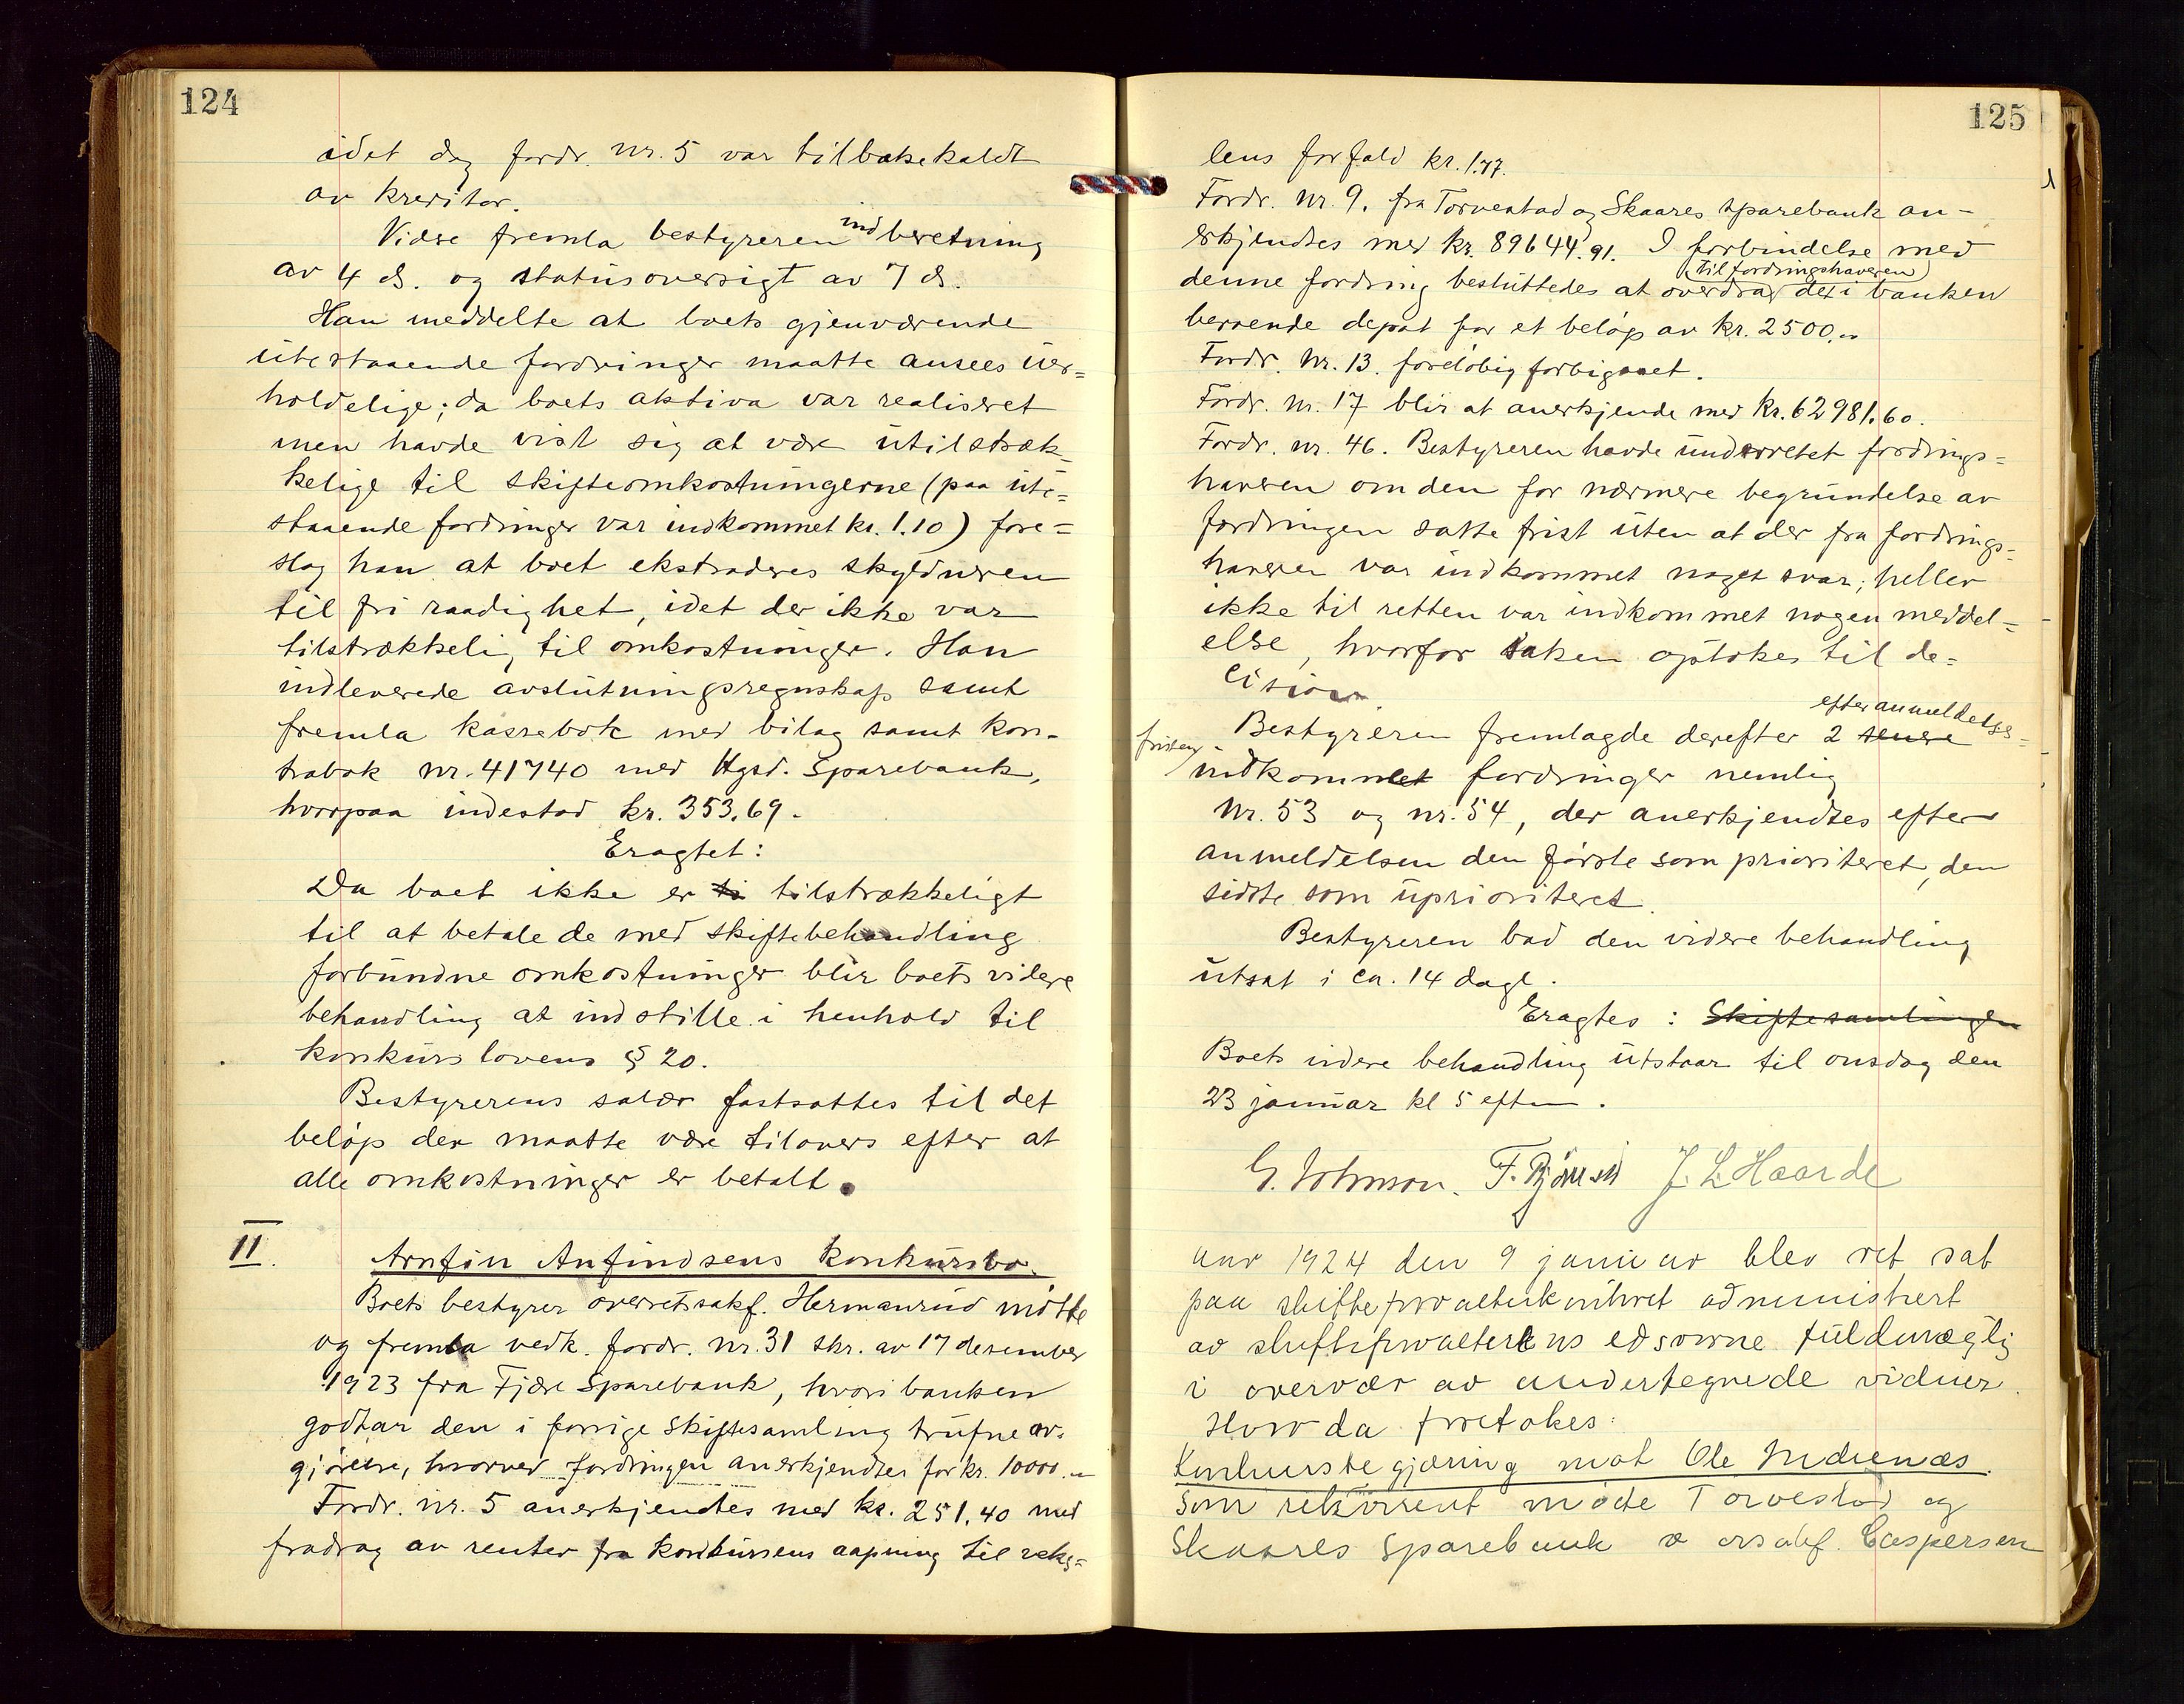 124
idet dog fordr. nr. 5 var tilbakekaldt
av kreditor.
Videre fremla bestyreren indberetning
av 4 ds. og statusoversigt av 7 ds.
Han meddelte at boets gjenværende
utestaaende fordringer maatte ansees uer=
holdelige; da boets aktiva var realiseret
men havde vist sig at være utilstræk-
kelige til skifteomkostningerne (paa ute=
staaende fordringer var indkommet kr. 1.10) fore=
slog han at boet ekstraderes skyldneren
til fri raadighet, idet der ikke var
tilstrækkelig til omkostninger. Han
indleverede avslutningsregnskap samt
fremla kassebok med bilag samt kon-
trabok nr. 41740 med Hgsd. Sparebank,
hvorpaa indestod kr. 353.69.
Eragtet:
Da boet ikke er ti tilstrækkeligt
til at betale de med skiftebehandling
forbundne omkostninger blir boets videre
behandling at indstille i henhold til
konkurslovens § 20.
Bestyrerens salær fastsattes til det
beløp der maatte være tilovers efter at
alle omkostninger er betalt.
II.
Arnfin Anfindsens konkursbo.
Boets bestyrer overretssakf. Hermanrud møtte
og fremla vedk. fordr. nr. 31 skr. av 17 desember
1923 fra Fjære Sparebank, hvori banken
godtar den i forrige skiftesamling trufne av-
gjørelse, hvorved fordringen anerkjendtes for kr. 10000.-
Fordr. nr. 5 anerkjendtes med kr. 251.40 med
fradrag av renter fra konkursens aapning til veks=
125
lens forfald kr. 1.77.
Fordr. nr. 9. fra Torvestad og Skaares sparebank an-
erkjendtes med kr. 89644.91. I forbindelse med
(til fordringshaveren)
denne fordring besluttedes at overdrage det i banken
beroende depot for et beløp av kr. 2500.-
Fordr. nr. 13. foreløbig forbigaaet.
Fordr. nr. 17 blir at anerkjende med kr. 62981.60.
Fordr. nr. 46. Bestyreren havde underrettet fordrings=
haveren om den for nærmere begrundelse av
fordringen satte frist uten at der fra fordrings=
haveren var indkommet noget svar; heller
ikke til retten var indkommet nogen meddel=
else, hvorfor saken optokes til de=
cision.
efter anmeldelses=
Bestyreren fremlagde derefter 2 senere
fristen indkommet fordringer nemlig
nr. 53 og nr. 54, der anerkjendtes efter
anmeldelsen den første som prioriteret, den
sidste som uprioriteret.
Bestyreren bad den videre behandling
utsat i ca. 14 dage.
Eragtes: Skiftesamlingen
Boets videre behandling utstaar til onsdag den
23 januar kl 5 efterm.
G. Johnson. J. L. Haarde
Aar 1924 den 9 januar blev ret sat
paa skifteforvalterkontoret administrert
av skifteforvalterens edsvorne fuldmægtig
i overvær av undertegnede vidner.
Hvor da foretokes:
Konkursbegjæring mot Ole Medienæs.
Som rekvirent møtte Torvestad og
Skaares Sparebank v orsakf. Caspersen